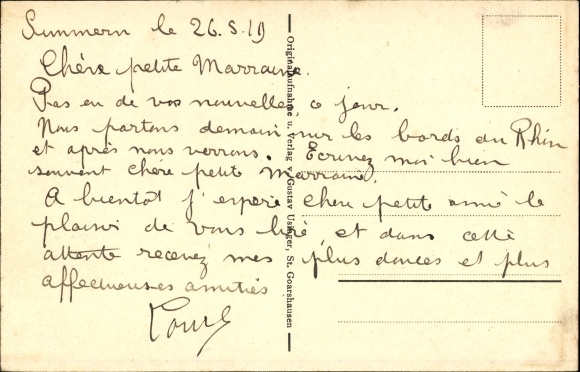 Summern le 26.5.19
Chère petite Marraine.
Pas eu de vos nouvelles ce jour.
Nous partons demain sur les bords du Rhin
et après nous verrons. Ecrivez moi bien
souvent chère petite Marraine.
A bientôt j'espère chère petite amie le
plaisir de vous lire et dans cette
attente recevez mes plus douces et plus
affectueuses amitiés
Originalaufnahme u. Verlag v. Gustav Usinger, St. Goarshausen